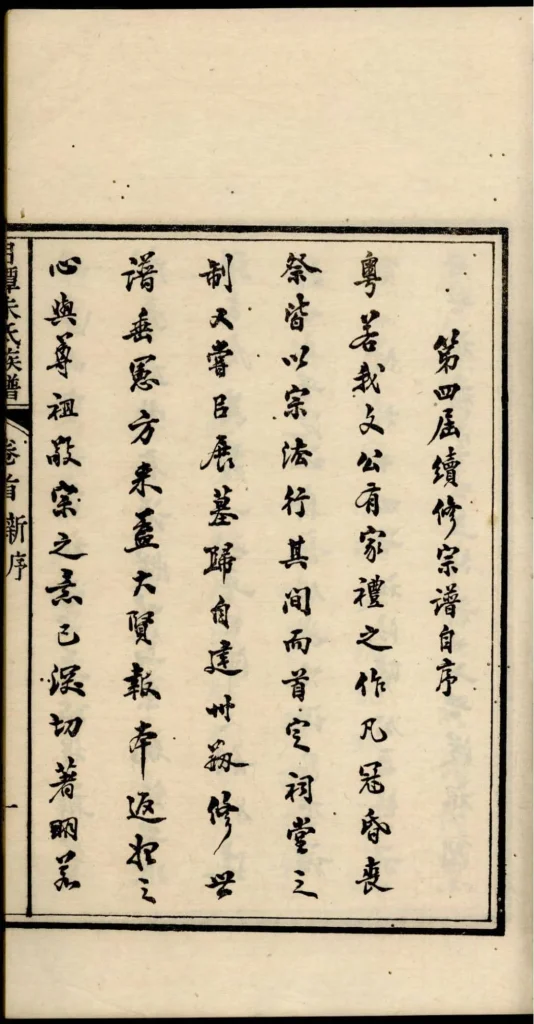 第四屆續修宗譜自序
粵若我文公有家禮之作凡冠昏喪
祭皆以宗法行其間而首定祠堂之
制又嘗以展墓歸自建州剏修世
譜垂憲方來蓋大賢報本返始之
心與尊祖敬宗之意已深切著明若
潭朱氏族譜 卷首 新序 一